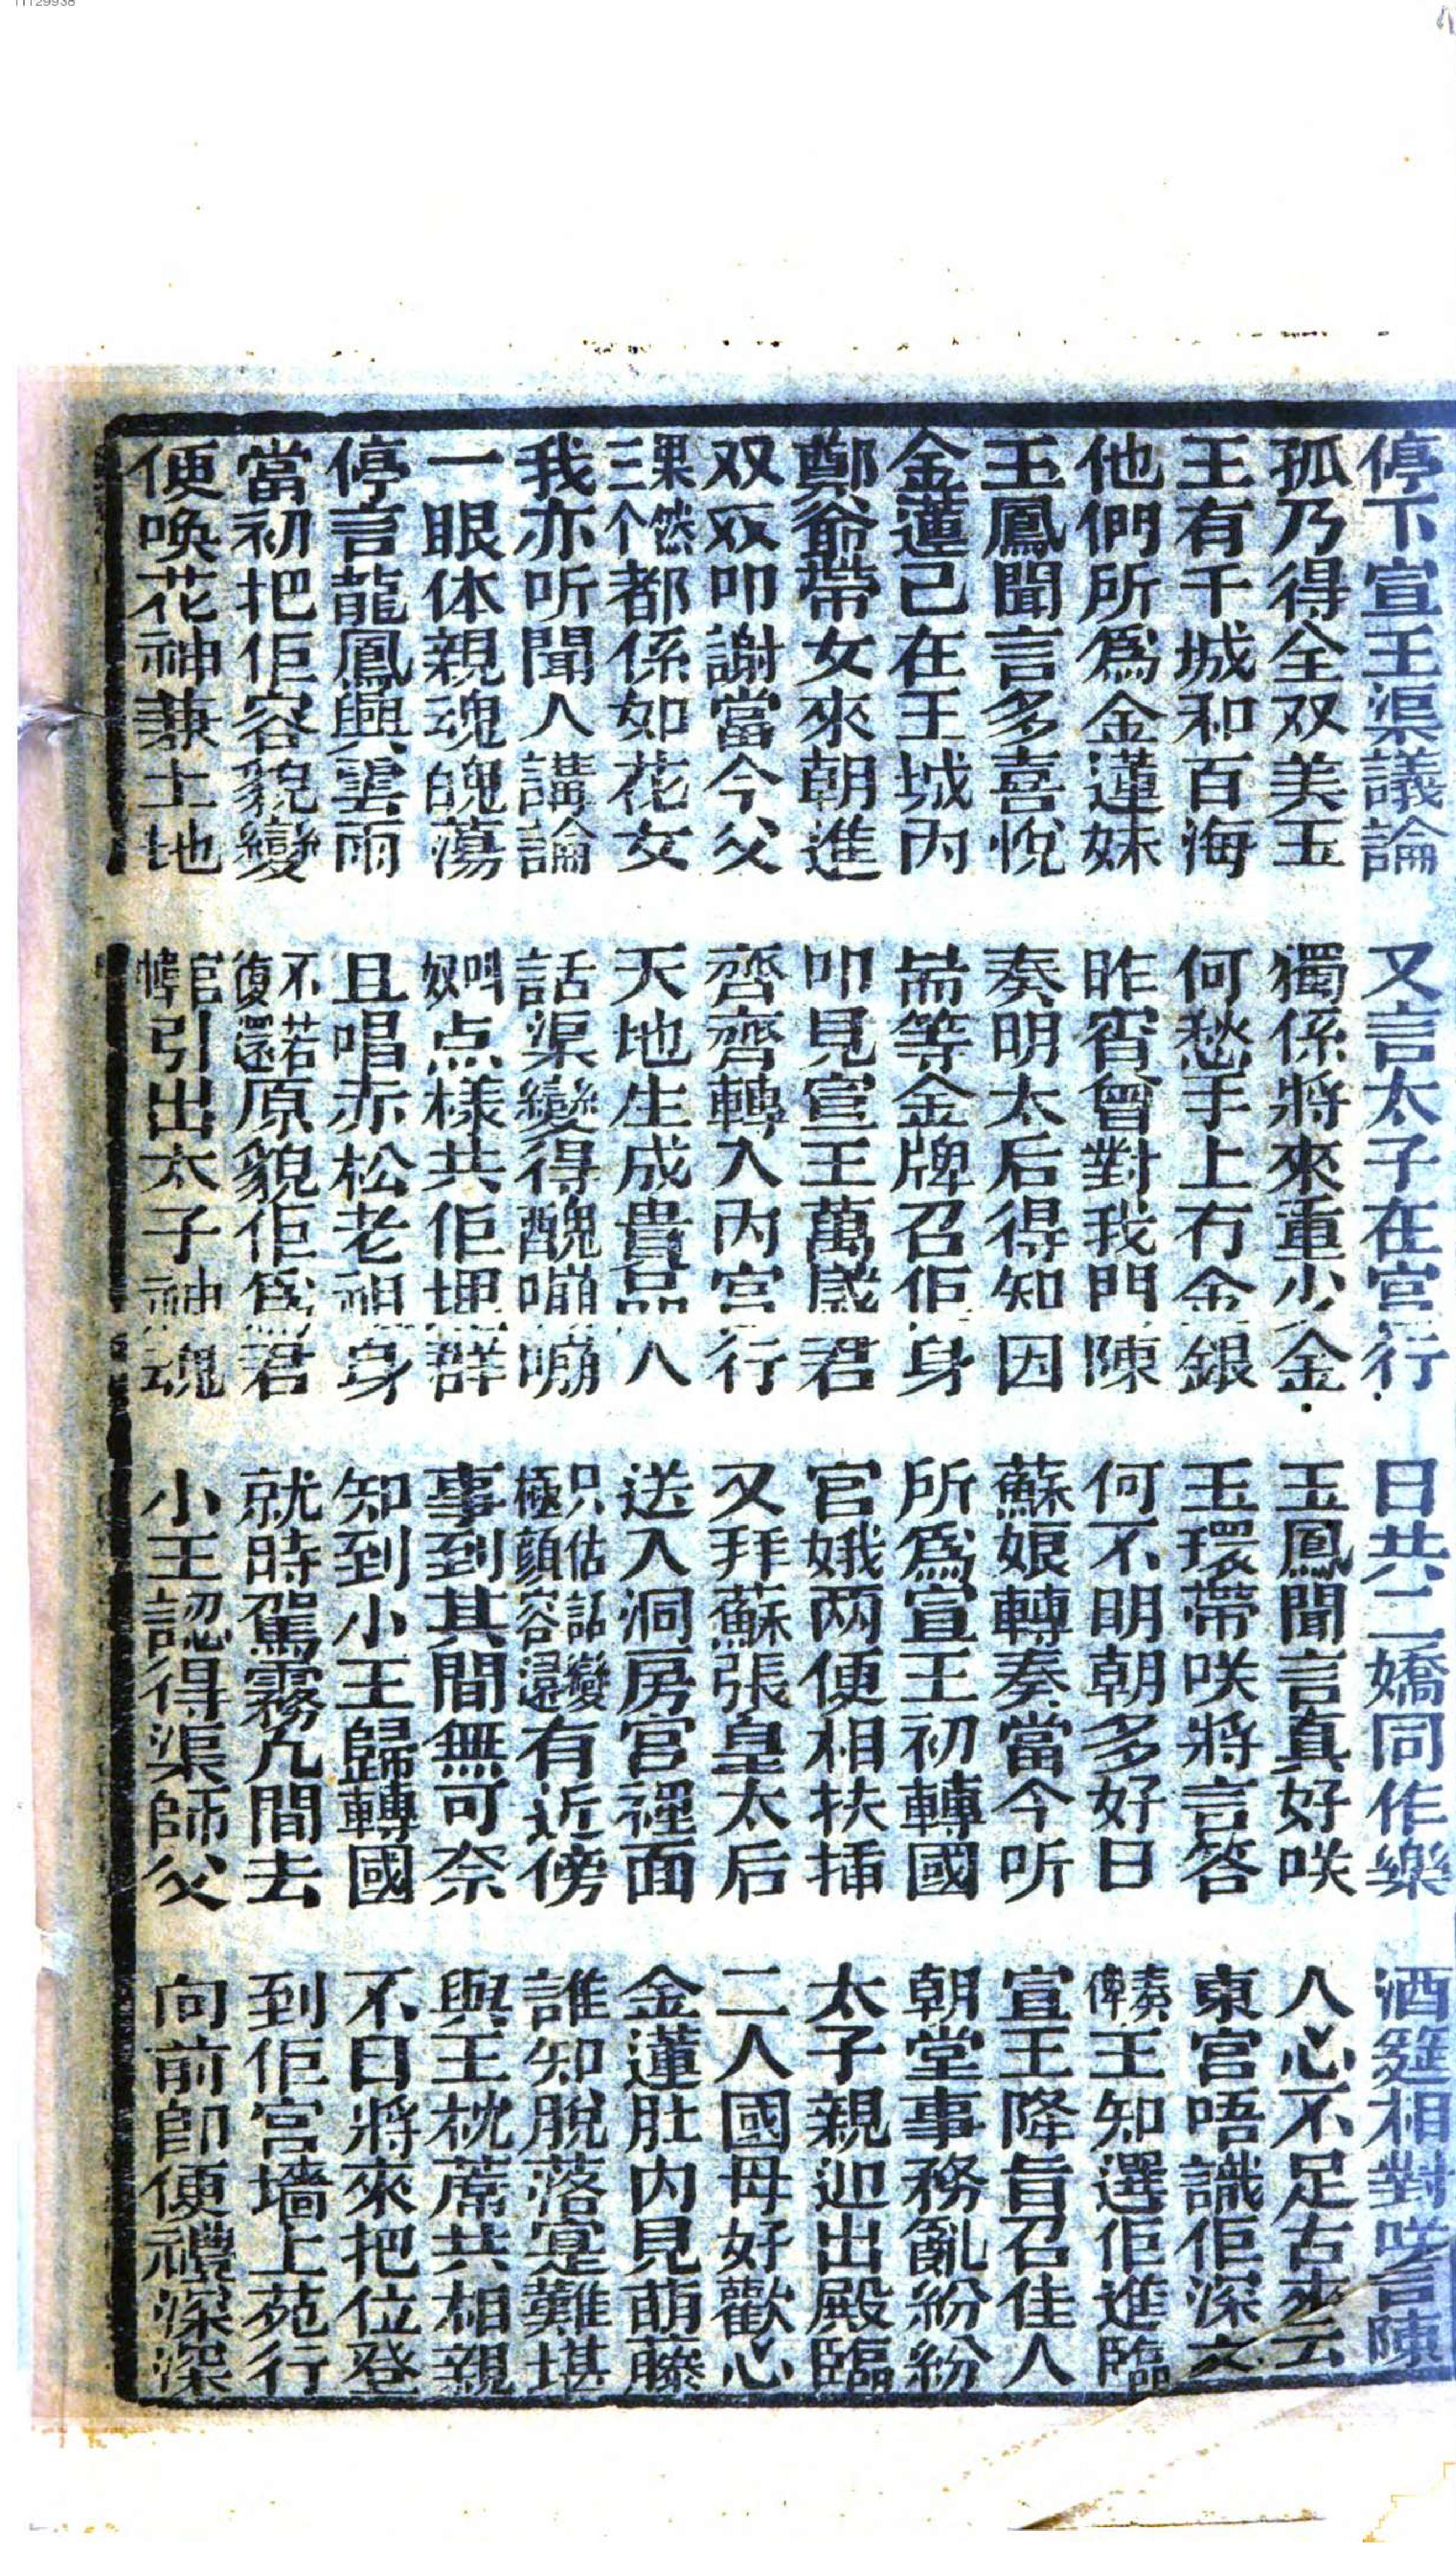 11129938
停下宣王渠議論　又言太子在宮行　日共二嬌同作樂　酒筵相對咲言陳
孤乃得全双美玉　獨係將來重少金　玉鳳聞言真好咲　人心不足古來云
王有千城和百海　何愁手上冇金銀　玉環帶咲將言答　東宮唔識佢深文
他們所爲金蓮妹　昨宵曾對我門陳　何不明朝多好日　奏俾王知選佢進臨
玉鳳聞言多喜悅　奏明太后得知因　蘇娘轉奏當今听　宣王降旨召佳人
金蓮已在王城內　耑等金牌召佢身　所爲宣王初轉國　朝堂事務亂紛紛
鄭爺帶女來朝進　叩見宣王萬歲君　宮娥两便相扶插　太子親迎出殿臨
双双叩謝當今父　齊齊轉入內宮行　又拜蘇張皇太后　二人國母好歡心
果然三个都係如花女　天地生成貴品人　送入洞房宮裡面　金蓮肚内見萌藤
我亦听聞人講論　話渠變得醜嘣嘣　只估話變極顏容還有近傍　誰知脫落寔難堪
一眼体親魂魄蕩　叫奴点樣共佢埋群　事到其間無可奈　與王枕蓆共相親
停言龍鳳興雲雨　且唱赤松老祖身　知到小王歸轉國　不日將來把位登
當初把佢容貌變　不若復還原貌佢爲君　就時駕霧凢間去　到佢宮墻上苑行
便喚花神兼土地　俾官引出太子神魂　小王認得渠師父　向前即便禮深深